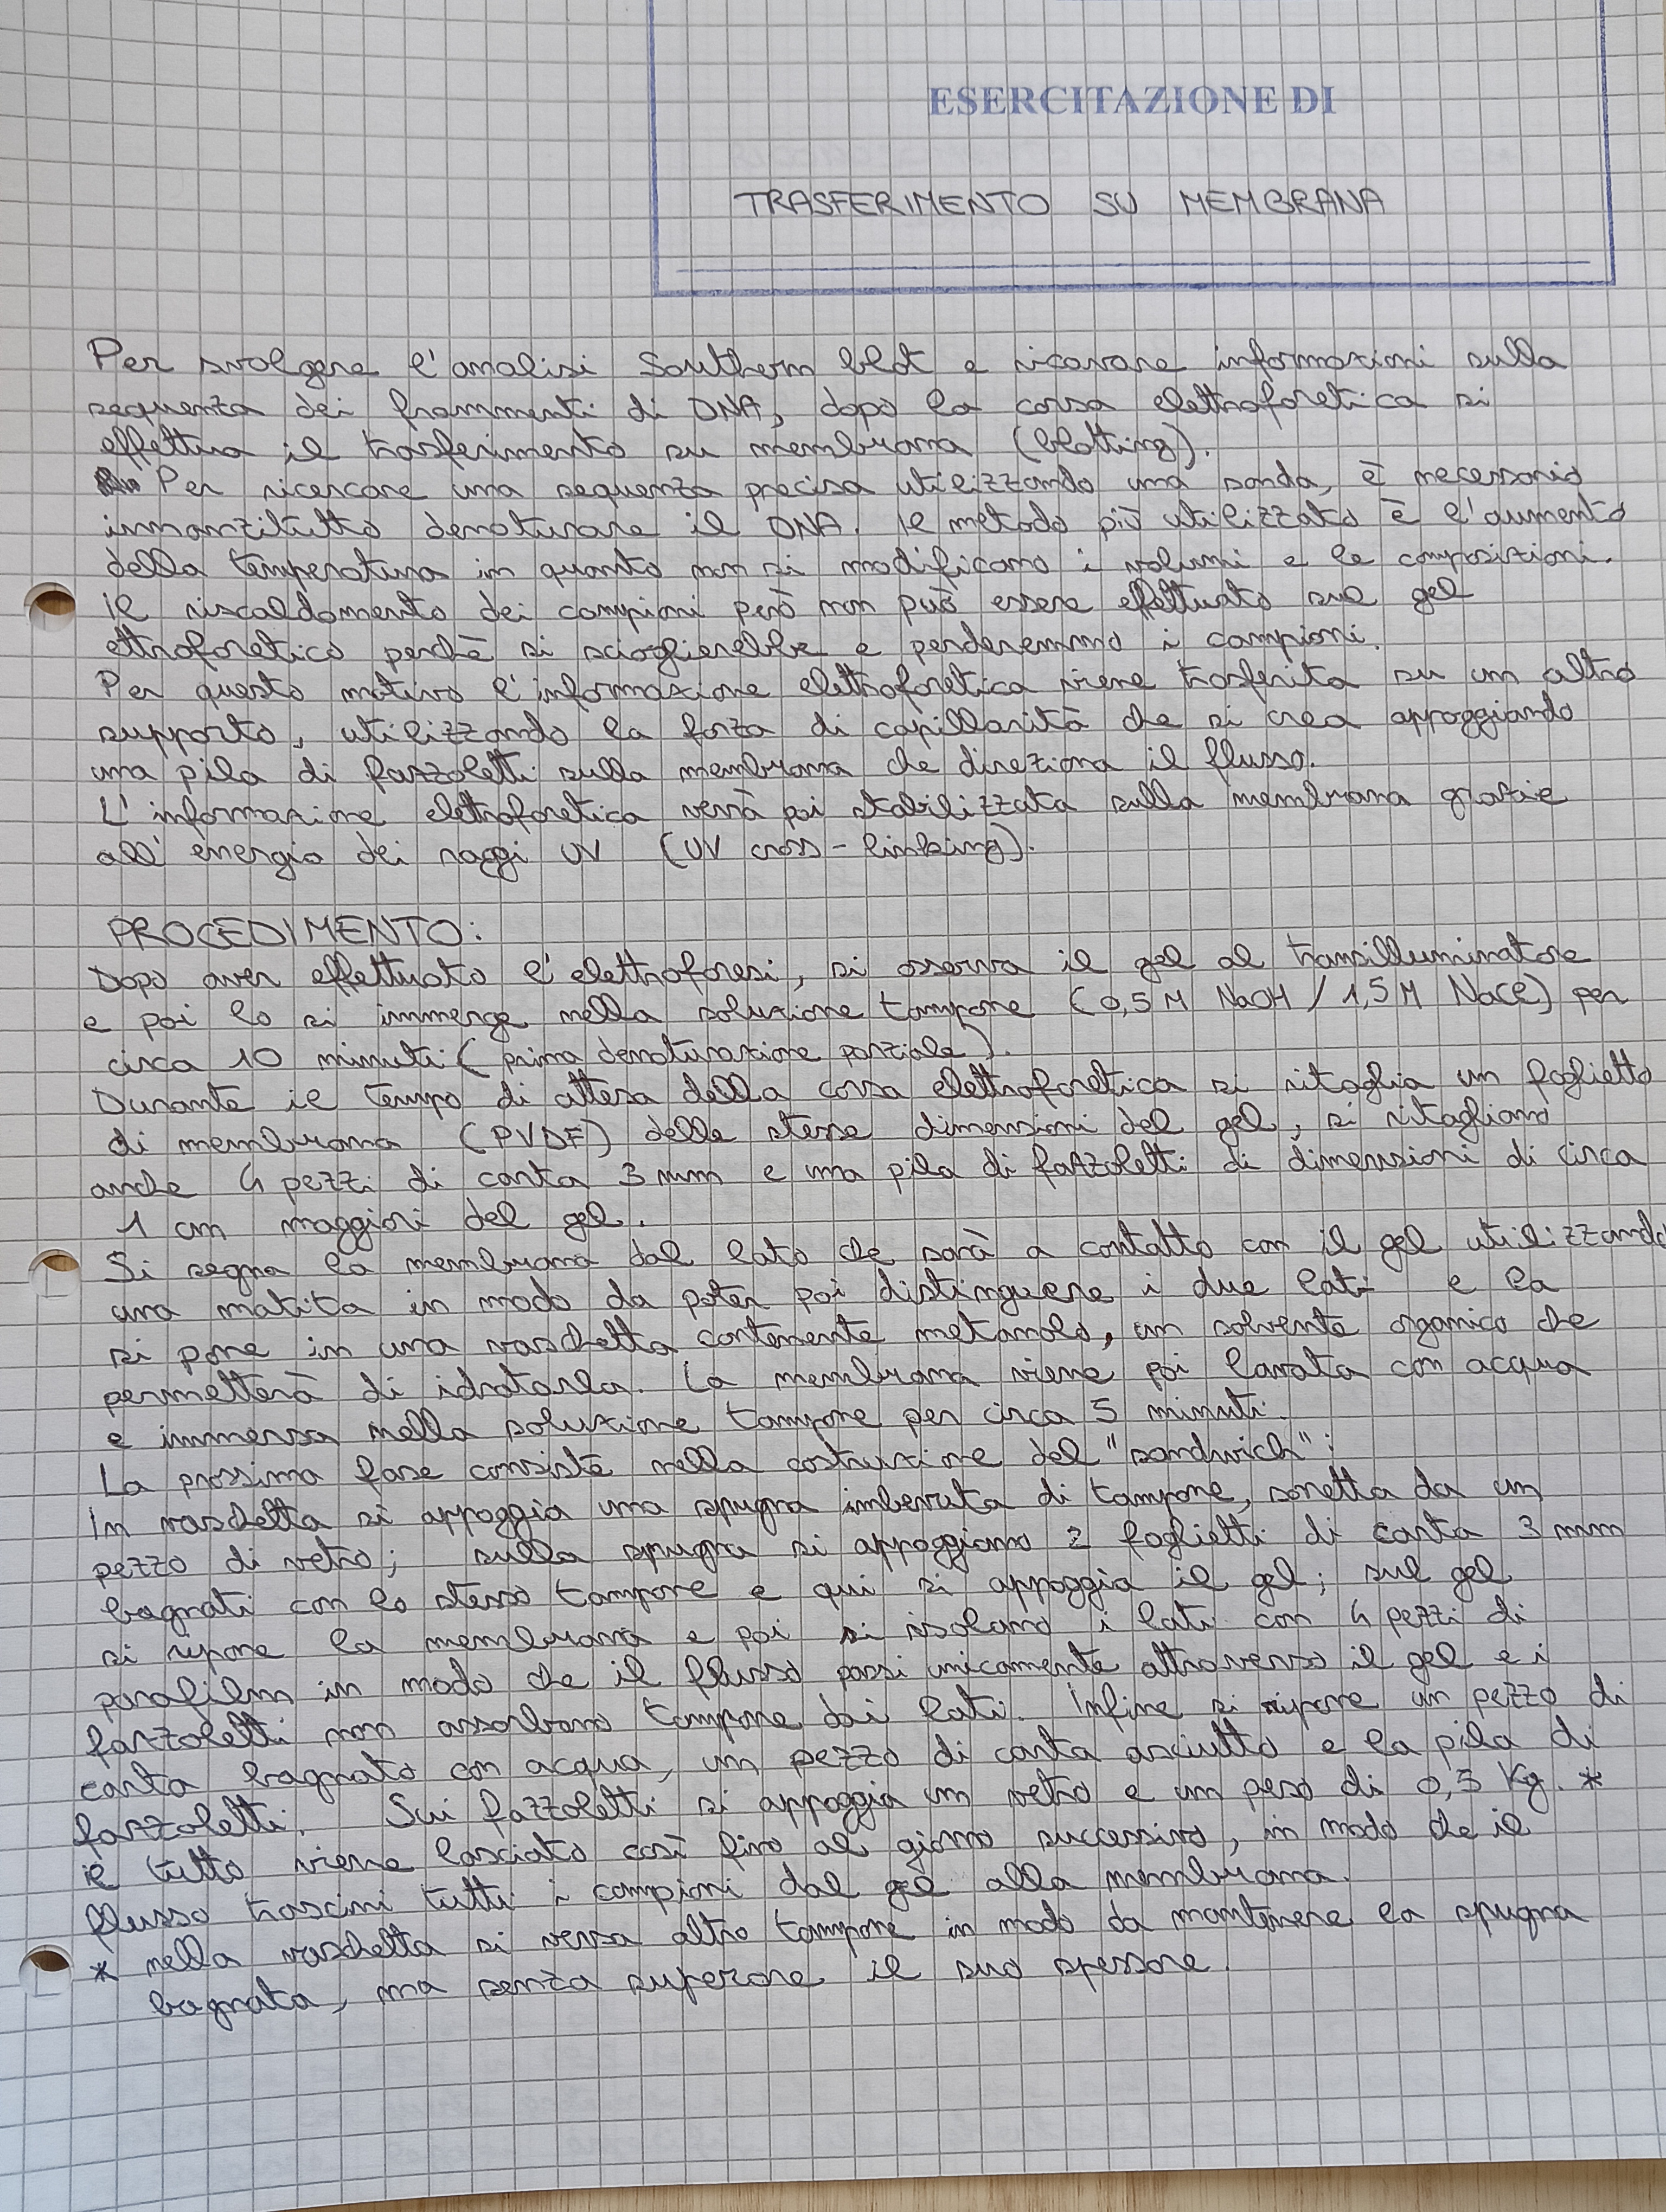 ESERCITAZIONE DI
TRASFERIMENTO SU MEMBRANA
Per svolgere l'analisi Southern blot e ricavare informazioni sulla
sequenza dei frammenti di DNA, dopo la corsa elettroforetica si
effettua il trasferimento su membrana (blotting).
Per ricercare una sequenza precisa utilizzando una sonda, è necessario
innanzitutto denaturare il DNA. Il metodo più utilizzato è l'aumento
della temperatura in quanto non si modificano i volumi e le composizioni.
Il riscaldamento dei campioni però non può essere effettuato sul gel
ettroforetico perchè si scioglierebbe e perderemmo i campioni.
Per questo motivo l'informazione elettroforetica viene trasferita su un altro
supporto, utilizzando la forza di capillarità che si crea appoggiando
una pila di fazzoletti sulla membrana che direziona il flusso.
L'informazione elettroforetica verrà poi stabilizzata sulla membrana grazie
all'energia dei raggi UV (UV cross-linking).
PROCEDIMENTO:
Dopo aver effettuato l'elettroforesi, si osserva il gel al transilluminatore
e poi lo si immerge nella soluzione tampone (0,5 M NaOH / 1,5 M NaCl) per
circa 10 minuti (prima denaturazione parziale).
Durante il tempo di attesa della corsa elettroforetica si ritaglia un foglietto
di membrana (PVDF) delle stesse dimensioni del gel, si ritagliano
anche 4 pezzi di carta 3 mm e una pila di fazzoletti di dimensioni di circa
1 cm maggiori del gel.
Si segna la membrana dal lato che sarà a contatto con il gel utilizzando
una matita in modo da poter poi distinguere i due lati e la
si pone in una vaschetta contenente metanolo, un solvente organico che
permetterà di idratarla. La membrana viene poi lavata con acqua
e immersa nella soluzione tampone per circa 5 minuti.
La prossima fase consiste nella costruzione del "sandwich":
In vaschetta si appoggia una spugna imbevuta di tampone, sorretta da un
pezzo di vetro; sulla spugna si appoggiano 2 foglietti di carta 3 mm
bagnati con lo stesso tampone e qui si appoggia il gel; sul gel
si ripone la membrana e poi si isolano i lati con 4 pezzi di
parafilm in modo che il flusso passi unicamente attraverso il gel e i
fazzoletti non assorbano tampone dai lati. Infine si ripone un pezzo di
carta bagnato con acqua, un pezzo di carta asciutto e la pila di
fazzoletti. Sui fazzoletti si appoggia un vetro e un peso di 0,5 Kg. *
Il tutto viene lasciato così fino al giorno successivo, in modo che il
flusso trascini tutti i campioni dal gel alla membrana.
* nella vaschetta si versa altro tampone in modo da mantenere la spugna
bagnata, ma senza superare il suo spessore.